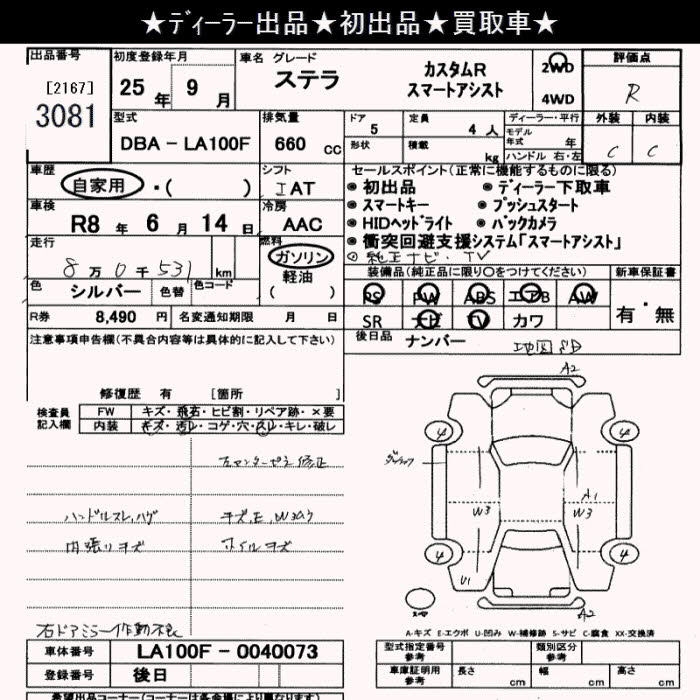 ★ディーラー出品★初出品★買取車★
出品番号 初度登録年月 車名 グレード 評価点
[2167] 3081
25年 9月
ステラ カスタムR スマートアシスト
2WD 4WD
R
型式 排気量 ドア 定員 ディーラー・平行 外装 内装
DBA - LA100F 660 cc 5 4人
モデル年式 年
形状 積載 kg ハンドル 右・左
C C
車歴 シフト セールスポイント(正常に機能するものに限る)
自家用 ・( ) IAT
◉ 初出品 ◉ ディーラー下取車
車検 冷房
◉ スマートキー ◉ プッシュスタート
R8 年 6 月 14 日 AAC
◉ HIDヘッドライト ◉ バックカメラ
走行 燃料
◉ 衝突回避支援システム「スマートアシスト」
8万0千531 km ガソリン 軽油 ( )
◎ 純正ナビ・TV
装備品(純正品に限り〇をつけてください) 新車保証書
色 シルバー 色替 色コード
PS PW ABS エアB AW
有・無
R券 8,490 円 名変通知期限 月 日
SR ナビ TV カワ
注意事項申告欄(不具合内容等は具体的に記入して下さい)
後日品 ナンバー
地図SD
修復歴 有 [箇所 ]
検査員記入欄 FW キズ・飛石・ヒビ割・リペア跡・×要
内装 キズ・汚レ・コゲ・穴・スレ・キレ・破レ
右センターピラ修正
ハンドルスレ,ハゲ キズ,E,W3あり
内張りキズ ホイルキズ
右ドアミラー作動不良
A2
4 4
W3 A1 W3
4 4
U1
A2
A-キズ E-エクボ U-凹み W-補修跡 S-サビ C-腐食 XX-交換済
車体番号 LA100F - 0040073
型式指定番号参考 類別区分参考
登録番号 後日
車庫証明用参考 長さ cm 幅 cm 高さ cm
希望出品コーナー(コーナーは各会場により異なります)